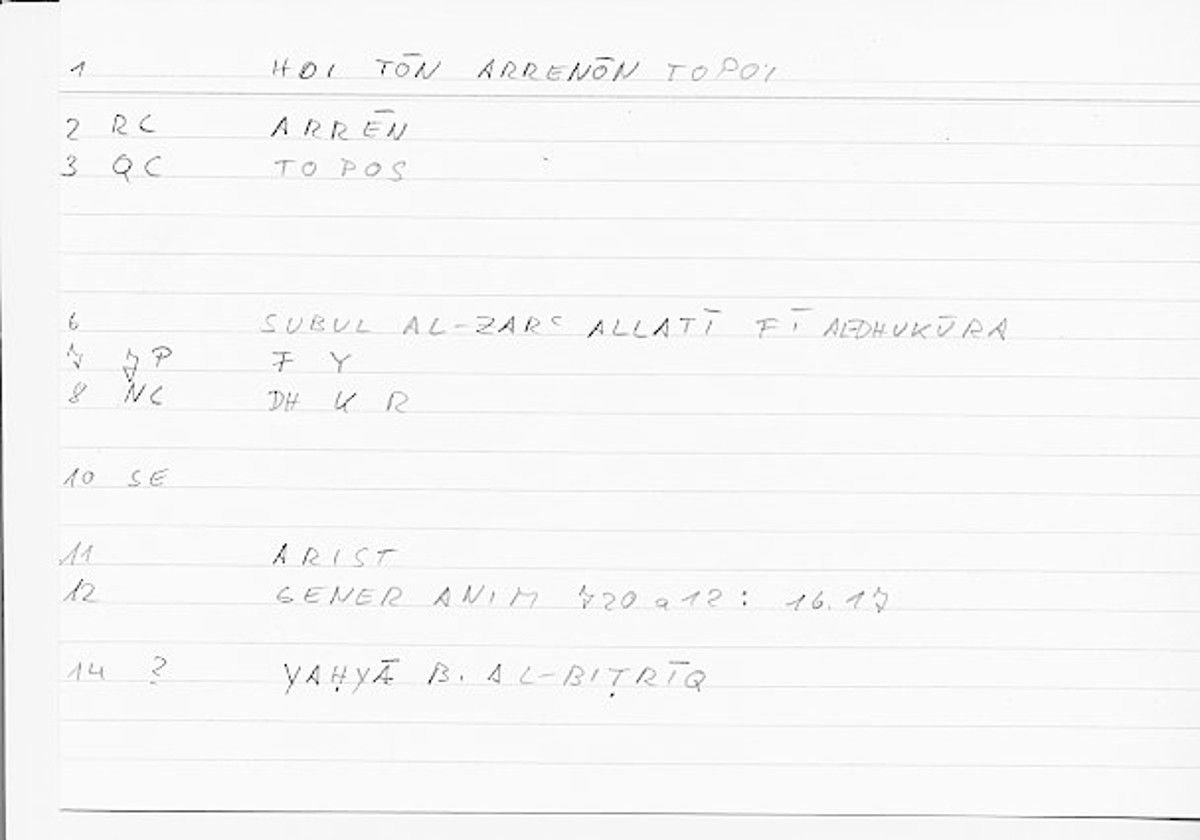 1 HOI TŌN ARRENŌN TOPOI
2 RC ARRĒN
3 QC TOPOS
6 SUBUL AL-ZARC ALLATĪ FĪ AL-DHUKŪRA
7 JP F Y
8 NC DH K R
10 SE
11 ARIST
12 GENER ANIM 720 a 12 : 16.17
14 ? YAḤYĀ B. AL-BIṬRĪQ